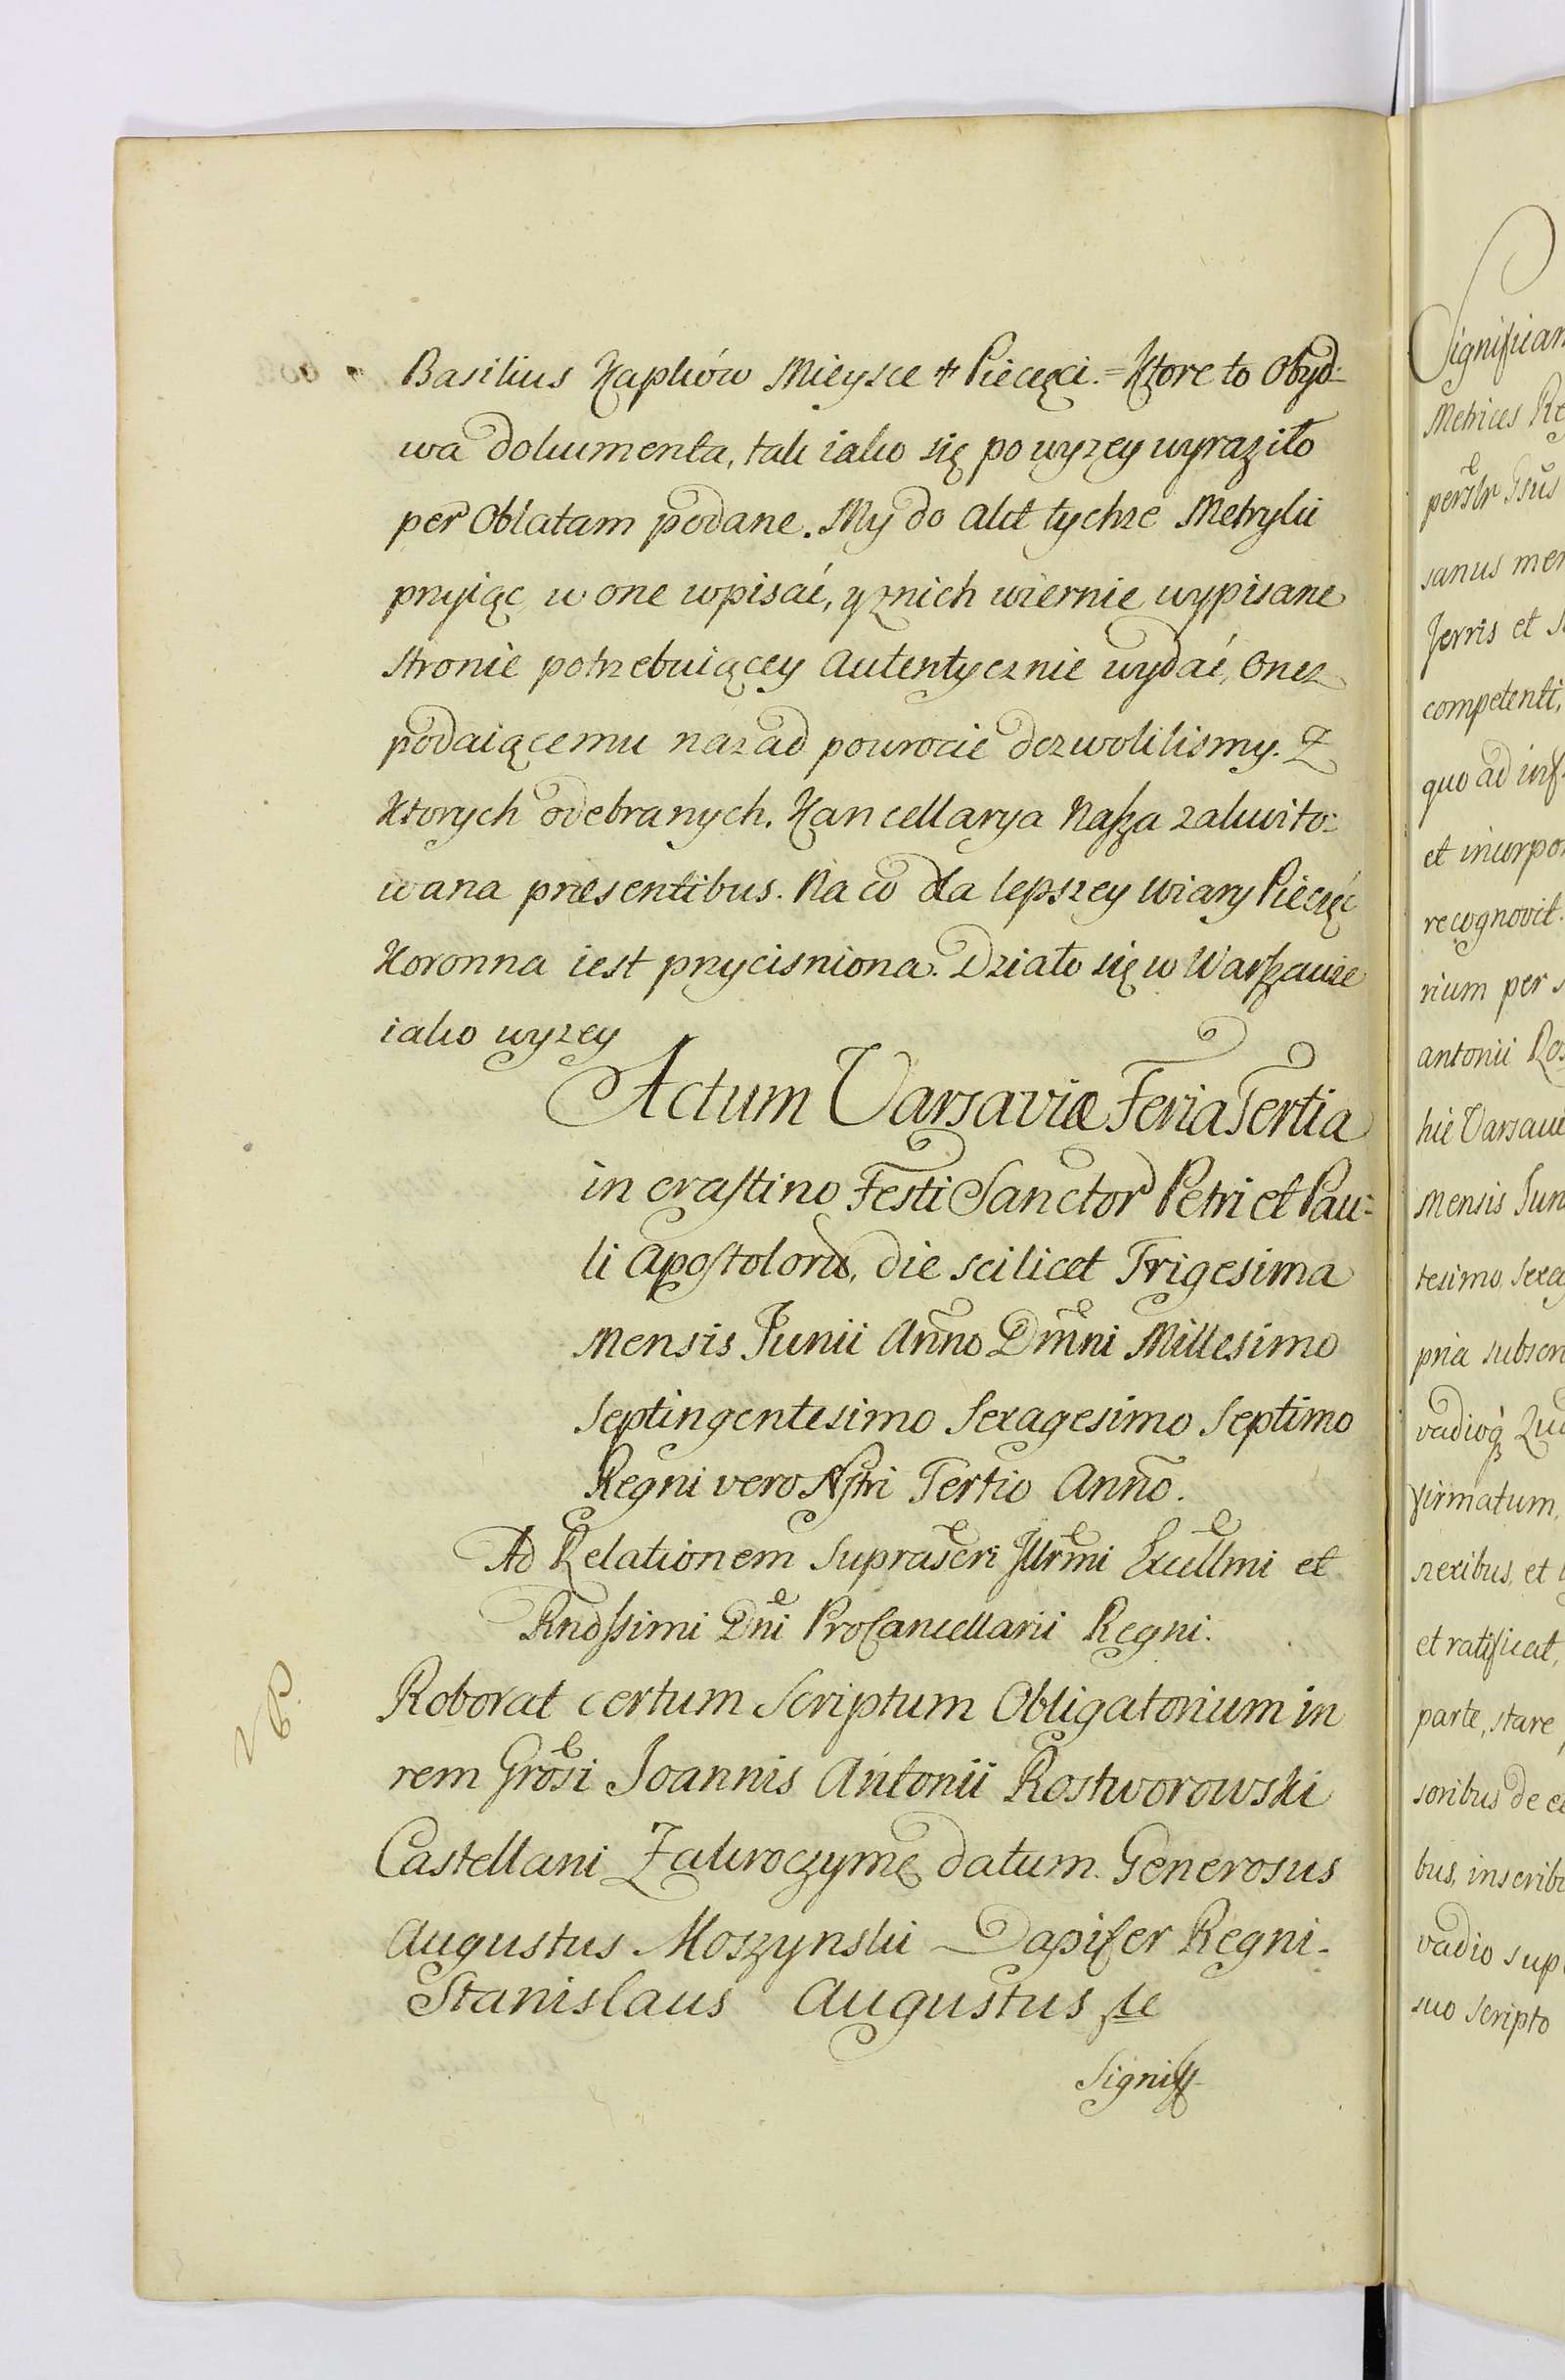 Basilius Kapków Mieysce ✝ Pieczęci.= Ktore to Obyd=
wa dokumenta, tak iako się powyzey wyraziło
per Oblatam podane. My do Akt tychze Metryki
przyiąc w one wpisać, y znich wiernie wypisane
stronie potrzebuiącey autentycznie wydać, onez
podaiącemu nazad powrocic dozwolilismy. Z
Ktorych odebranych, Kancellarya Naſza zakwito=
wana præsentibus. Na co dla lepszey wiary Pieczęć
Koronna iest przycisniona. Działo się w Warſzawie
iako wyzey
Actum Varsaviæ Feria Tertia
in craſtino Festi Sanctor Petri et Pau=
li Apoſtolorũ, die scilicet Trigesima
Mensis Junii Anno Dm̃ni Millesimo
Septingentesimo Sexagesimo Septimo
Regni vero Nſtri Tertio Anno.
Ad Relationem Suprascri Jllrmi Excellmi et
Rndſsimi Dni ProCancellarii Regni.
Roborat certum Scriptum Obligatorium in
rem Grosi Joannis Antonii Rostworowski
Castellani Zakroczyme datum. Generosus
Augustus Moszynski Dapifer Regni.
Stanislaus Augustus &c
Signiff
Significam
Metrices Re
sanus men
Terris et
competenti,
quo ad inf
et incorpor
recognovit.
rium per
antonii Ros
hic Varsavi
Mensis Jun
tesimo, Sexag
pria subscri
firmatum,
nexibus, et
et ratificat,
parte, stare
soribus de e
bus, inscrib
vadio sup
suo scripto